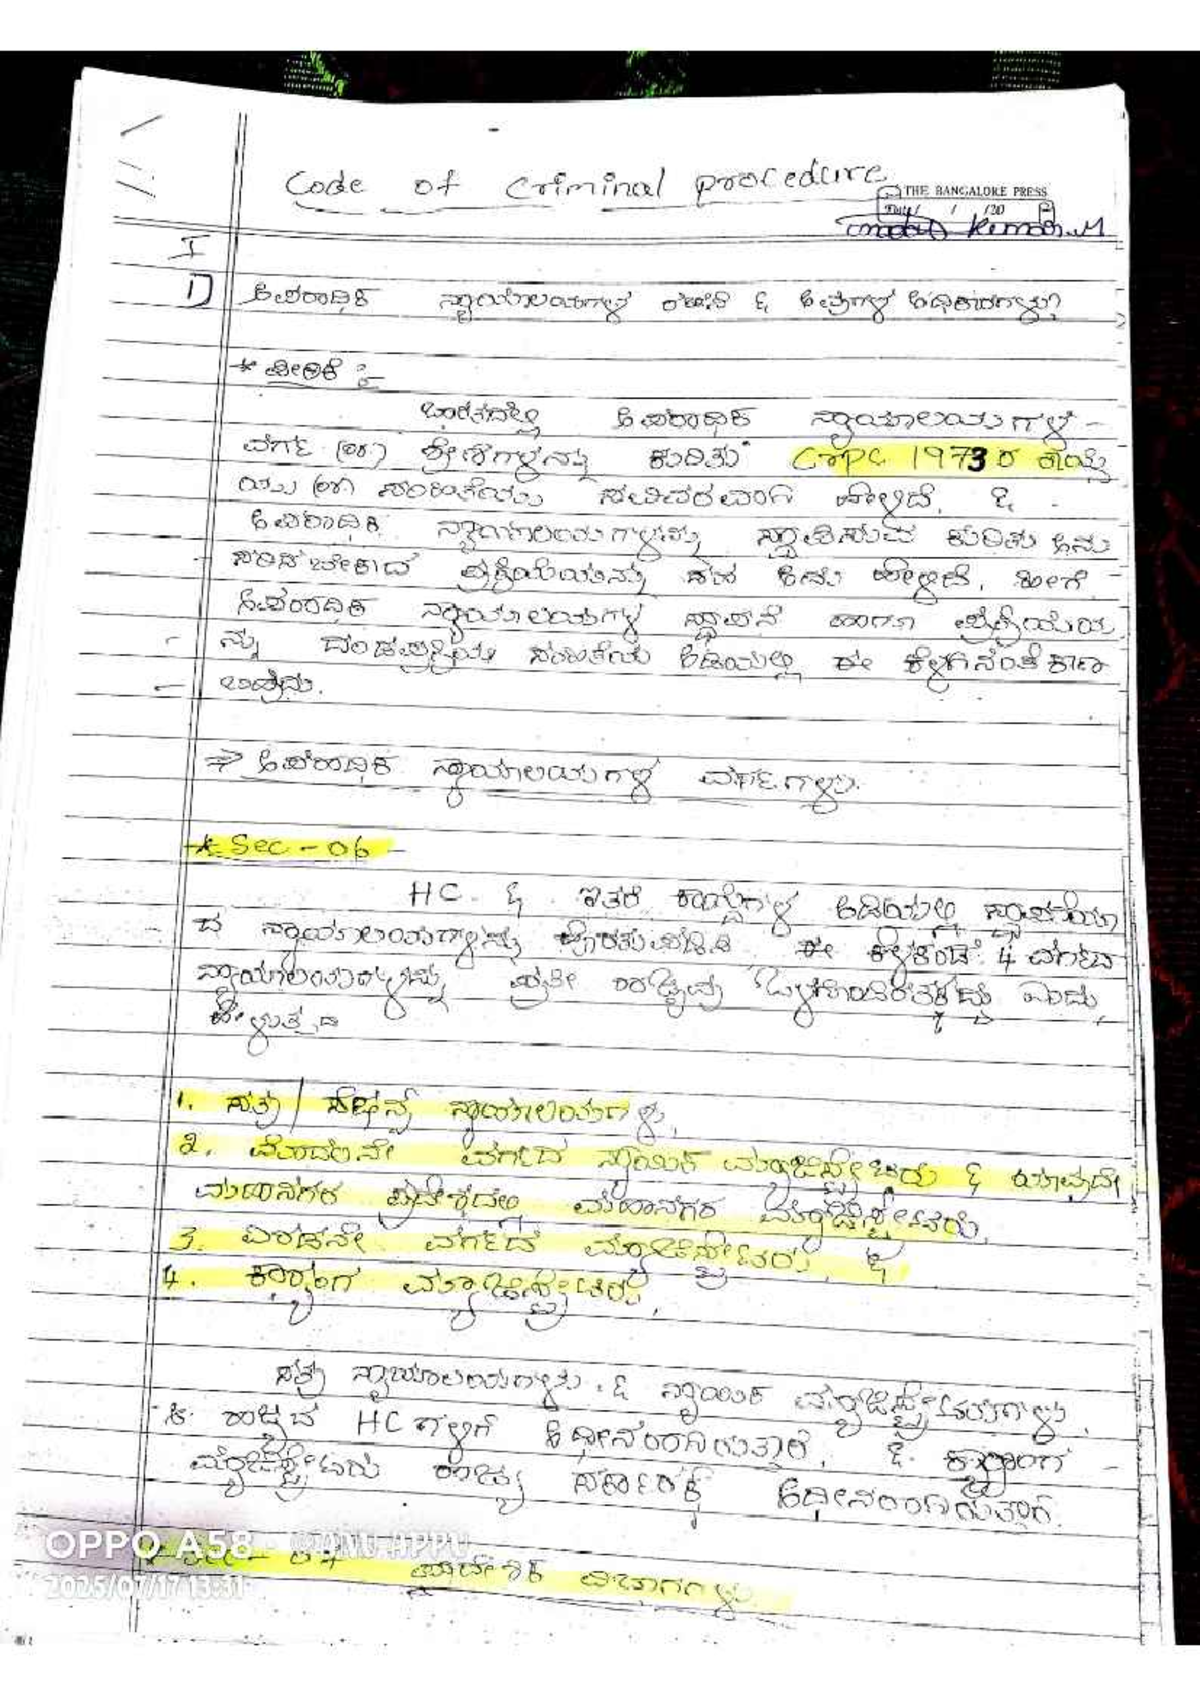 Code of Criminal procedure
THE BANGALORE PRESS
Date / / 20
Kumar.M
I
1) ಅಪರಾಧಿಕ ನ್ಯಾಯಾಲಯಗಳ ರಚನೆ & ಅವುಗಳ ಅಧಿಕಾರಗಳು?
* ಪೀಠಿಕೆ :-
ಭಾರತದಲ್ಲಿ ಅಪರಾಧಿಕ ನ್ಯಾಯಾಲಯಗಳ -
ವರ್ಗ (ಅಥವಾ) ಶ್ರೇಣಿಗಳನ್ನು ಕುರಿತು Crpc 1973 ರ ಕಾಯ್ದೆ
ಯು (ಅಥವಾ) ಸಂಹಿತೆಯು ಸವಿವರವಾಗಿ ಹೇಳಿದೆ, & -
ಅಪರಾಧಿಕ ನ್ಯಾಯಾಲಯಗಳನ್ನು ಸ್ಥಾಪಿಸುವ ಕುರಿತು ಅನು
ಸರಿಸಬೇಕಾದ ಪ್ರಕ್ರಿಯೆಯನ್ನು ಸಹ ಹೇಳಿದೆ, ಹೀಗೆ
ಅಪರಾಧಿಕ ನ್ಯಾಯಾಲಯಗಳ ಸ್ಥಾಪನೆ ಹಾಗೂ ಪ್ರಕ್ರಿಯೆಯ
ನ್ನು ದಂಡಪ್ರಕ್ರಿಯಾ ಸಂಹಿತೆಯ ಅಡಿಯಲ್ಲಿ ಈ ಕೆಳಗಿನಂತೆ ಕಾಣ
ಬಹುದು.
⇒ ಅಪರಾಧಿಕ ನ್ಯಾಯಾಲಯಗಳ ವರ್ಗಗಳು.
* Sec - 06 -
HC & ಇತರೆ ಕಾಯ್ದೆಗಳ ಅಡಿಯಲ್ಲಿ ಸ್ಥಾಪನೆಯಾ
ದ ನ್ಯಾಯಾಲಯಗಳನ್ನು ಹೊರತುಪಡಿಸಿ ಈ ಕೆಳಕಂಡ 4 ವರ್ಗದ
ನ್ಯಾಯಾಲಯಗಳನ್ನು ಪ್ರತೀ ರಾಜ್ಯವು ಒಳಗೊಂಡಿರತಕ್ಕದ್ದು ಎಂದು
ಹೇಳುತ್ತದೆ
1. ಸತ್ರ / ಸೆಷನ್ಸ್ ನ್ಯಾಯಾಲಯಗಳು,
2. ಮೊದಲನೇ ವರ್ಗದ ನ್ಯಾಯಿಕ ಮ್ಯಾಜಿಸ್ಟ್ರೇಟರು & ಯಾವುದೇ
ಮಹಾನಗರ ಪ್ರದೇಶದಲ್ಲಿ ಮಹಾನಗರ ಮ್ಯಾಜಿಸ್ಟ್ರೇಟರು,
3. ಎರಡನೇ ವರ್ಗದ ಮ್ಯಾಜಿಸ್ಟ್ರೇಟರು, &
4. ಕಾರ್ಯಾಂಗ ಮ್ಯಾಜಿಸ್ಟ್ರೇಟರು,
ಸತ್ರ ನ್ಯಾಯಾಲಯಗಳು, & ನ್ಯಾಯಿಕ ಮ್ಯಾಜಿಸ್ಟ್ರೇಟರುಗಳು,
ರಾಜ್ಯದ HC ಗಳಿಗೆ ಅಧೀನರಾಗಿರುತ್ತಾರೆ, & ಕಾರ್ಯಾಂಗ -
ಮ್ಯಾಜಿಸ್ಟ್ರೇಟರು ರಾಜ್ಯ ಸರ್ಕಾರಕ್ಕೆ ಅಧೀನರಾಗಿರುತ್ತಾರೆ.
OPPO A58 · MANU APPU
2025/07/17 13:31
* Sec - 07 ಪ್ರಾದೇಶಿಕ ವಿಭಾಗಗಳು.